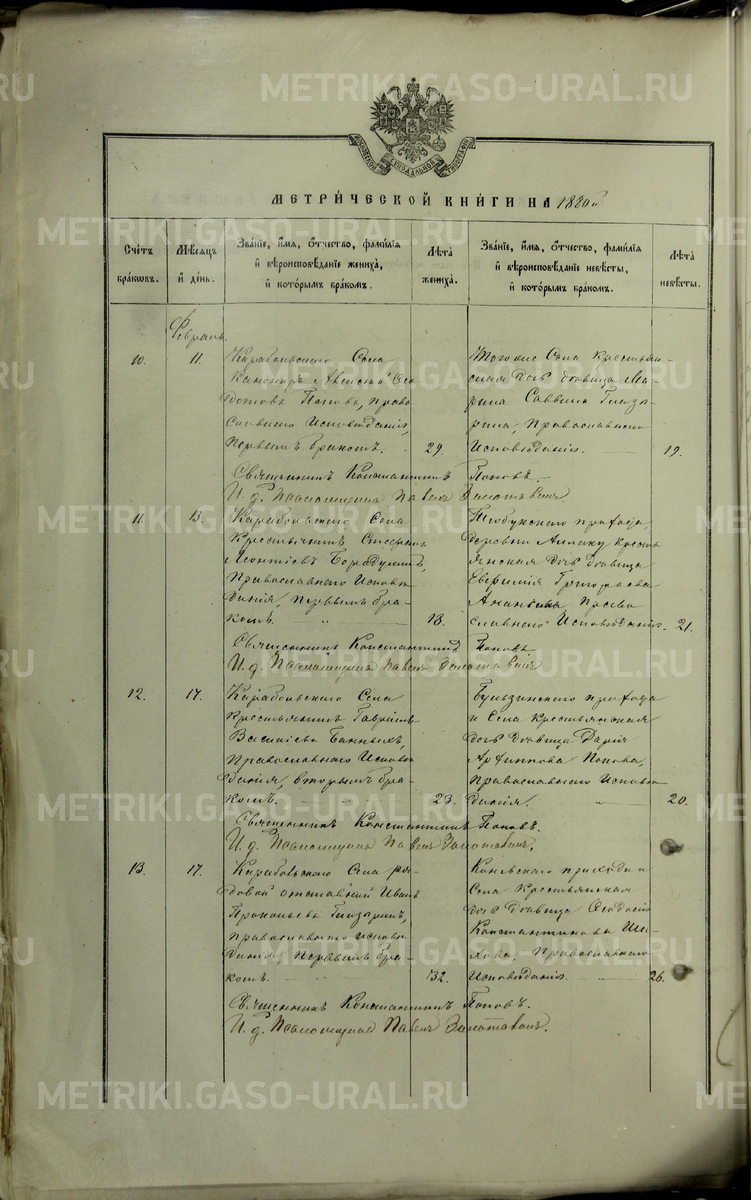 METRIKI.GASO-URAL.RU
МОСКОВСКОЙ СѴНОДАЛЬНОЙ ТИПОГРАФІИ
МЕТРИ́ЧЕСКОЙ КНИ́ГИ НА 1880й
Сче́тъ бра́ковъ.
Мѣ́сяцъ и҆ де́нь.
Зва́нїе, и҆́мя, ѻ҆́тчество, фами́лїя и҆ вѣроисповѣ́данїе жениха̀, и҆ кото́рымъ бра́комъ.
Лѣ́та жениха̀.
Зва́нїе, и҆́мя, ѻ҆́тчество, фами́лїя и҆ вѣроисповѣ́данїе невѣ́сты, и҆ кото́рымъ бра́комъ.
Лѣ́та невѣ́сты.
Февраль
10.
11.
Карабольскаго Села
Канониръ Алексѣй Ѳео
дотовъ Поповъ, право
славнаго Исповѣданія,
Первымъ бракомъ.
29.
Тогоже Села Крестьян-
ская дочь дѣвица Ма-
рина Саввина
Православнаго
Исповѣданія.
19.
Священникъ Константинъ Поповъ.
И. д. Псаломщика Павелъ
11.
13.
Карабольскаго Села
Крестьянинъ Стефанъ
Леонтіевъ Бородулинъ,
Православнаго Исповѣ
данія, Первымъ бра-
комъ.
18.
прихода,
деревни Аллаку кресть
янская дочь дѣвица
Евфимія Григорьева
Ананьина Право
славнаго Исповѣданія.
21.
Священникъ Константинъ Поповъ.
И. д. Псаломщика Павелъ
12.
17.
Карабольскаго Села
Крестьянинъ Гавріилъ
Василіевъ Банныхъ,
Православнаго Исповѣ
данія, вторымъ бра-
комъ.
23.
Булзинскаго прихода
и Села Крестьянская
дочь дѣвица Дарія
Архиппова Попова,
Православнаго Исповѣ
данія.
20.
Священникъ Константинъ Поповъ.
И. д. Псаломщика Павелъ
13.
17.
Карабольскаго Села ря-
довой отставной Иванъ
Прокопьевъ
православнаго исповѣ
данія, первымъ бра-
комъ.
32.
Коневскаго прихода и
Села Крестьянская
дочь дѣвица Ѳеодосія
Константинова
Православнаго
Исповѣданія
26.
Священникъ Константинъ Поповъ.
И. д. Псаломщика Павелъ